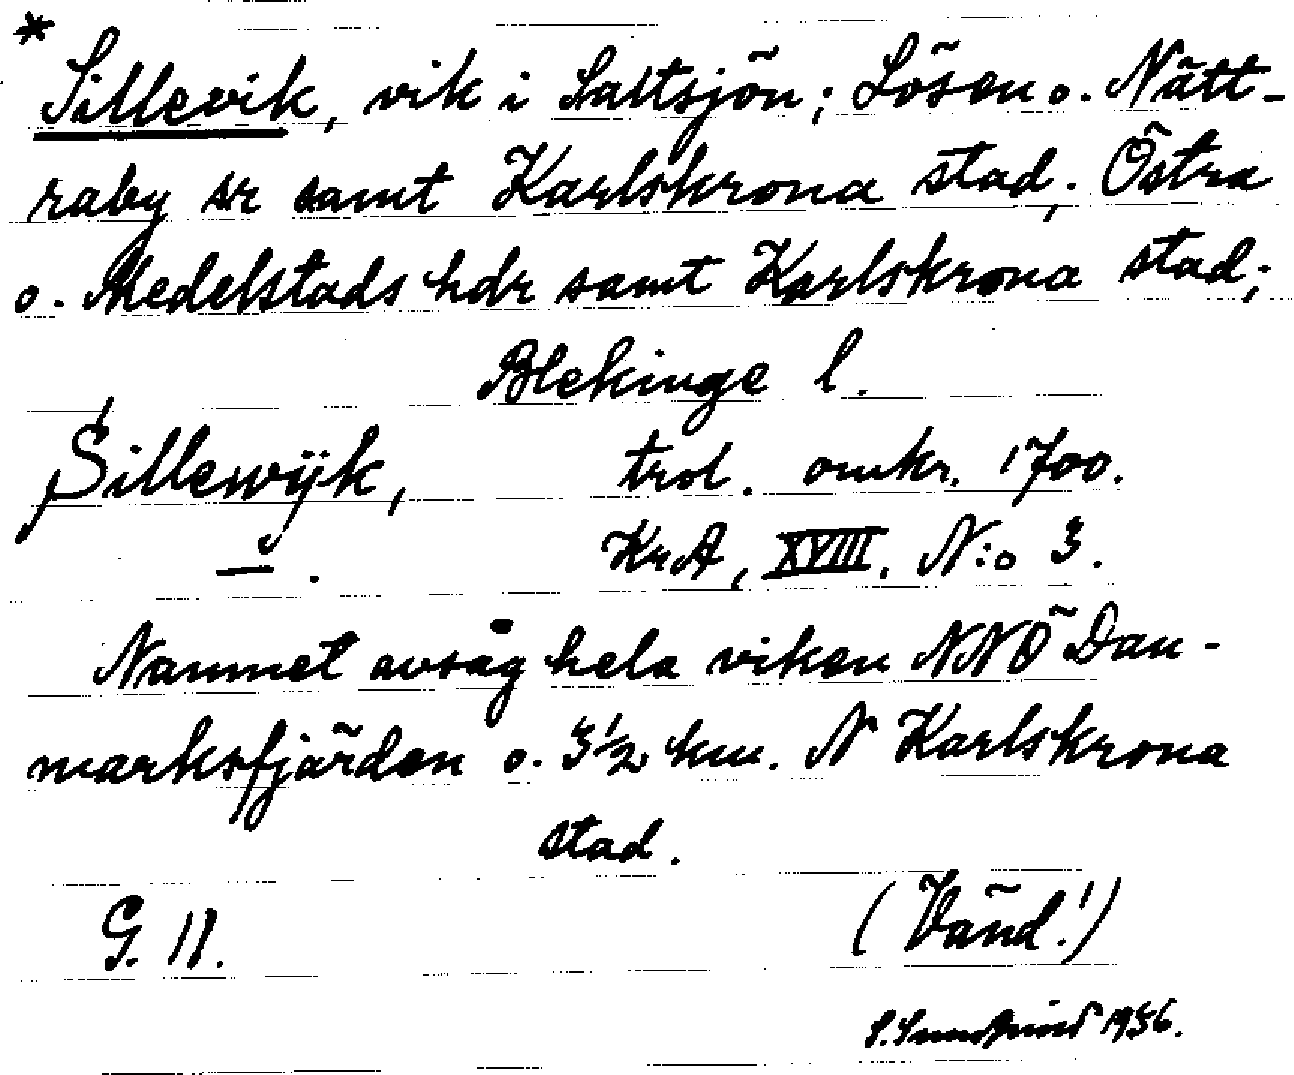 * Sillevik, vik i Saltsjön; Lösen o. Nätt-
raby sr samt Karlskrona stad, Östra
o. Medelstads hdr samt Karlskrona stad;
Blekinge l.
Sillewijk, trol. omkr. 1700.
—. KrA, XVIII. N:o 3.
Namnet avsåg hela viken NNÖ Dan-
marksfjärden o. 3 1/2 km. N Karlskrona
stad.
G. 11. (Vänd!)
1936.